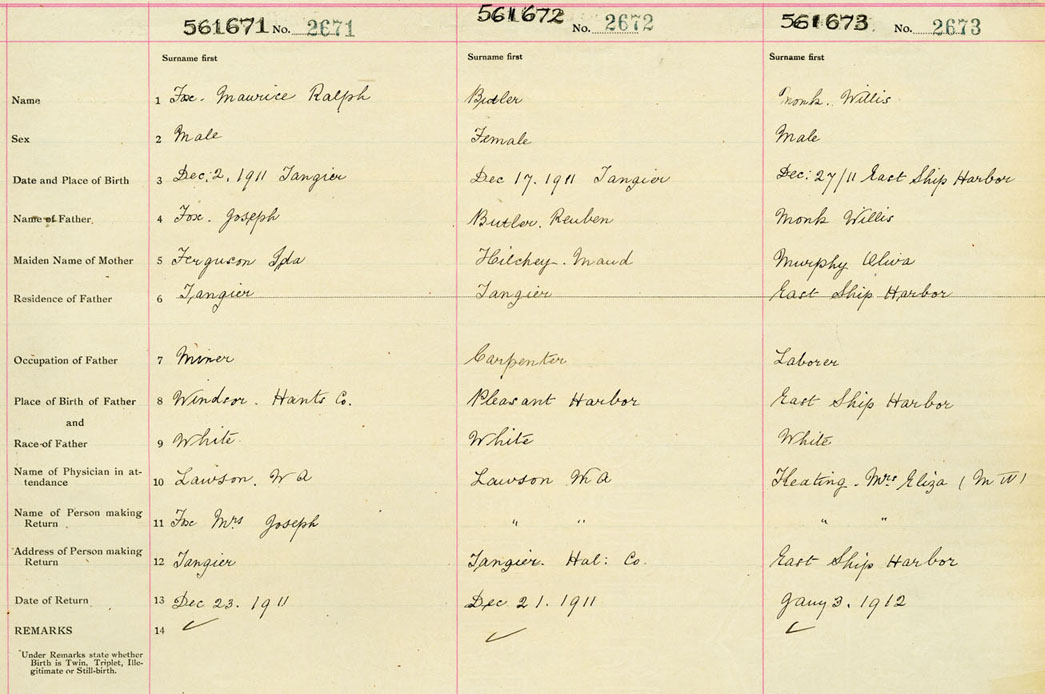 561671 No. 2671 561672 No. 2672 561673 No. 2673
Surname first Surname first Surname first
Name 1 Fox. Maurice Ralph Butler Monk. Willis
Sex 2 Male Female Male
Date and Place of Birth 3 Dec. 2. 1911 Tangier Dec 17. 1911 Tangier Dec: 27/11 East Ship Harbor
Name of Father 4 Fox. Joseph Butler. Reuben Monk Willis
Maiden Name of Mother 5 Ferguson Ida Hilchey. Maud Murphy Oliva
Residence of Father 6 Tangier Tangier East Ship Harbor
Occupation of Father 7 Miner Carpenter Laborer
Place of Birth of Father 8 Windsor. Hants Co. Pleasant Harbor East Ship Harbor
and
Race of Father 9 White White White
Name of Physician in at-
tendance 10 Lawson. W A Lawson W A Keating. Mrs Eliza (M W)
Name of Person making
Return 11 Fox Mrs Joseph " " " "
Address of Person making
Return 12 Tangier Tangier. Hal: Co. East Ship Harbor
Date of Return 13 Dec 23. 1911 Dec 21. 1911 Jany 3. 1912
REMARKS 14 ✓ ✓ ✓
Under Remarks state whether
Birth is Twin, Triplet, Ille-
gitimate or Still-birth.